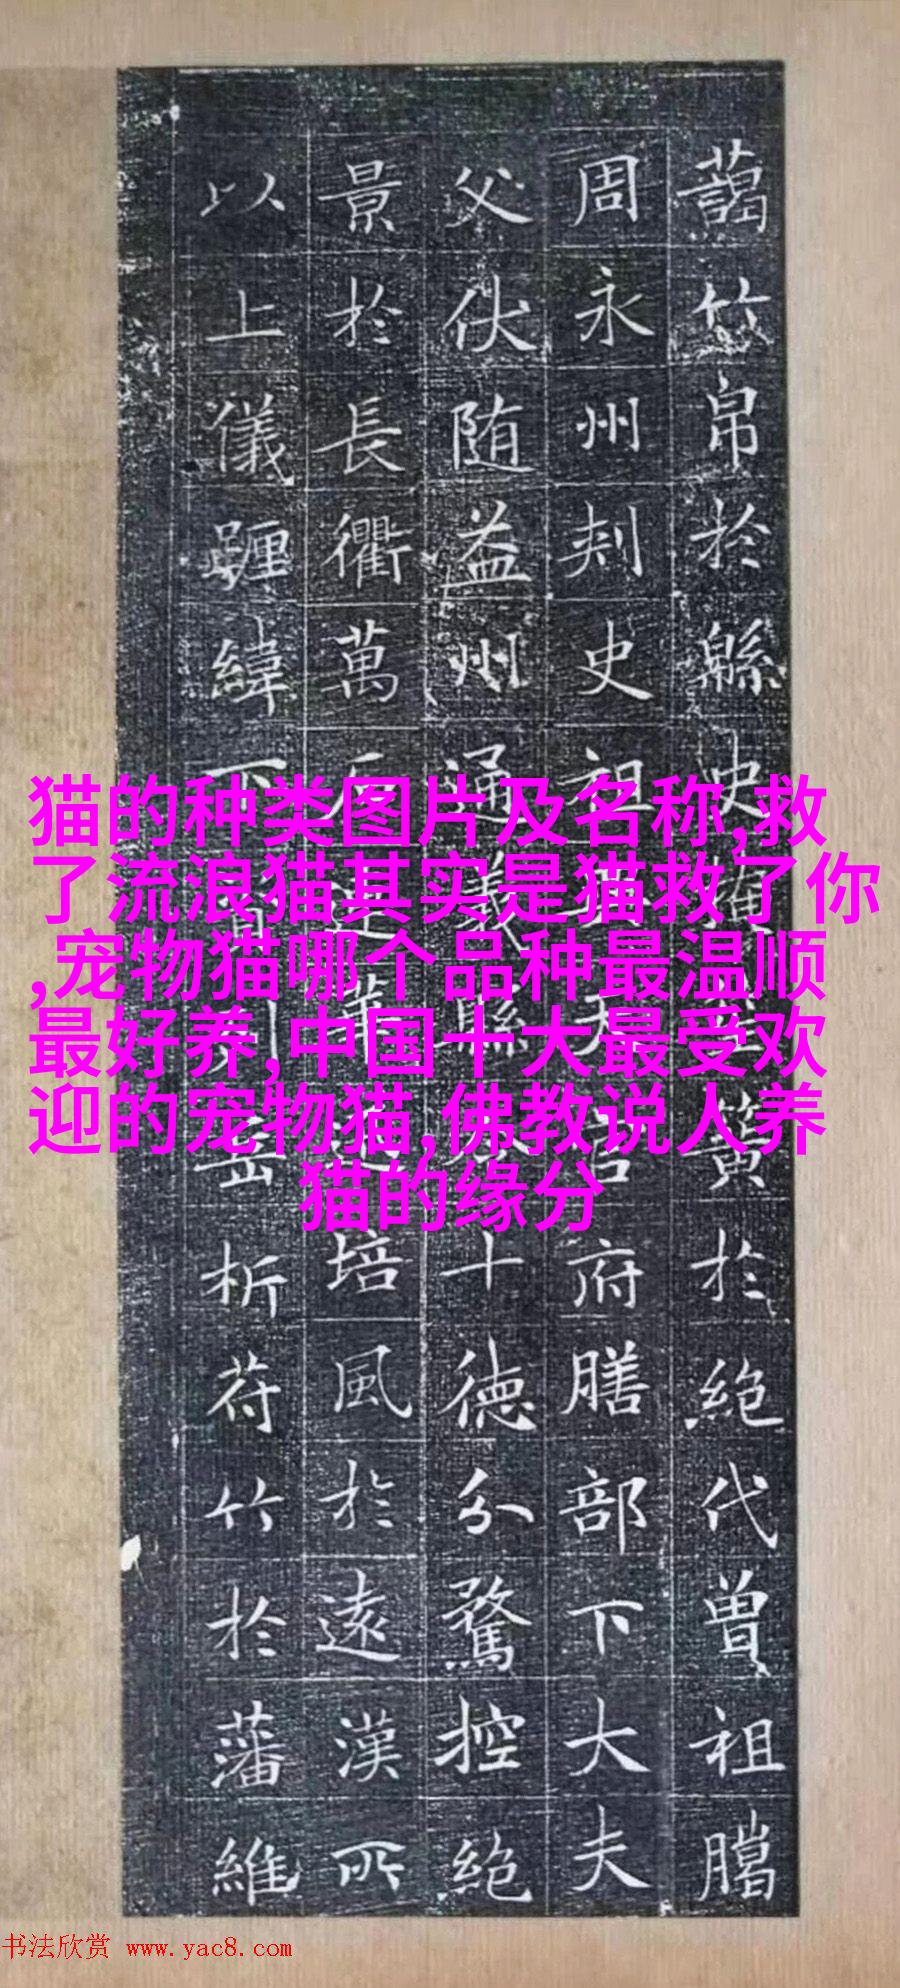 竹帛於緜史於絶代曾祖
周永州刾史祖府膳部下大夫
父伏随益州通義縣十德分騖控絶
景於長衢萬石培風於遠漢所
以上儀躔緯下岳析苻竹於藩維
猫的种类图片及名称,救
了流浪猫其实是猫救了你
,宠物猫哪个品种最温顺
最好养,中国十大最受欢
迎的宠物猫,佛教说人养
猫的缘分
书法欣赏 www.yac8.com